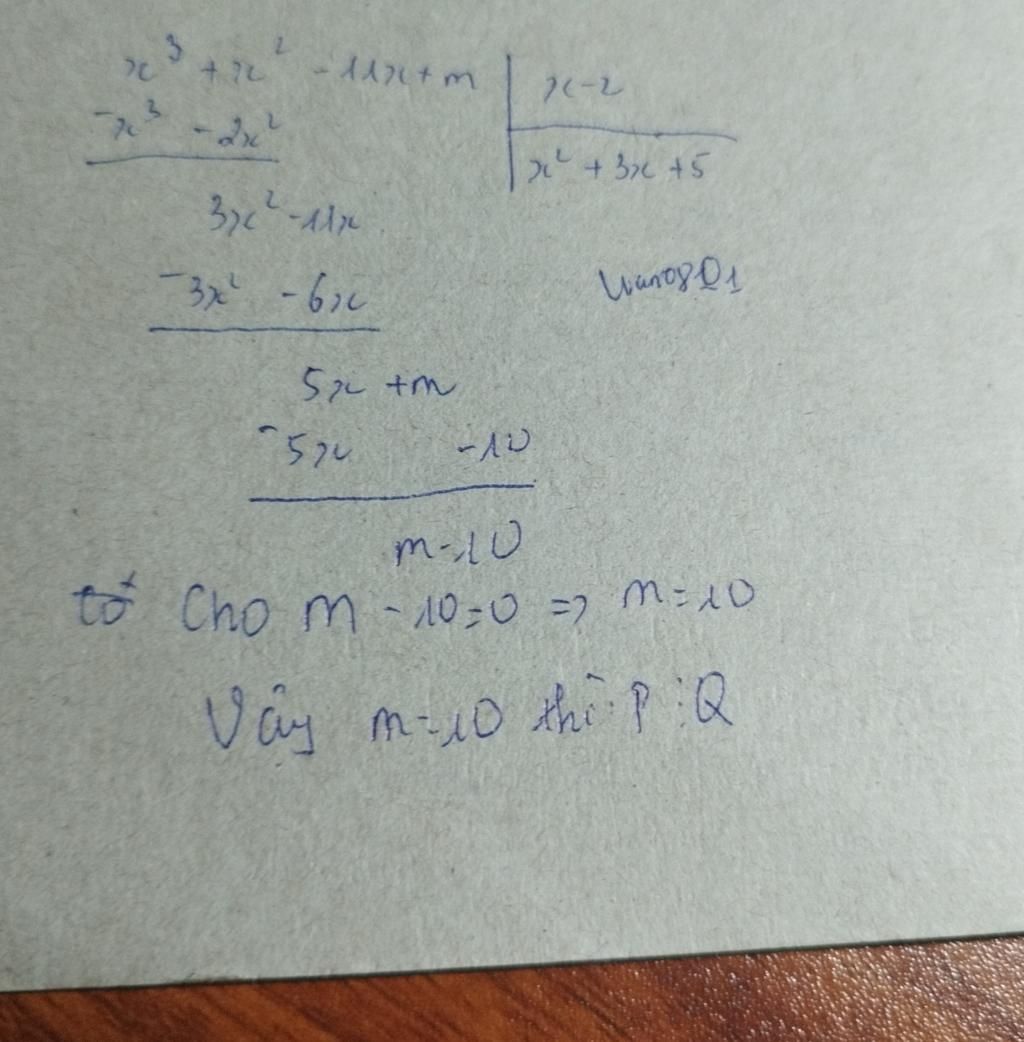 x³ + x² - 11x + m | x - 2
- x³ - 2x² | x² + 3x + 5
3x² - 11x
- 3x² - 6x
5x + m
- 5x - 10
m - 10
Cho m - 10 = 0 => m = 10
Vậy m = 10 thì P ⋮ Q